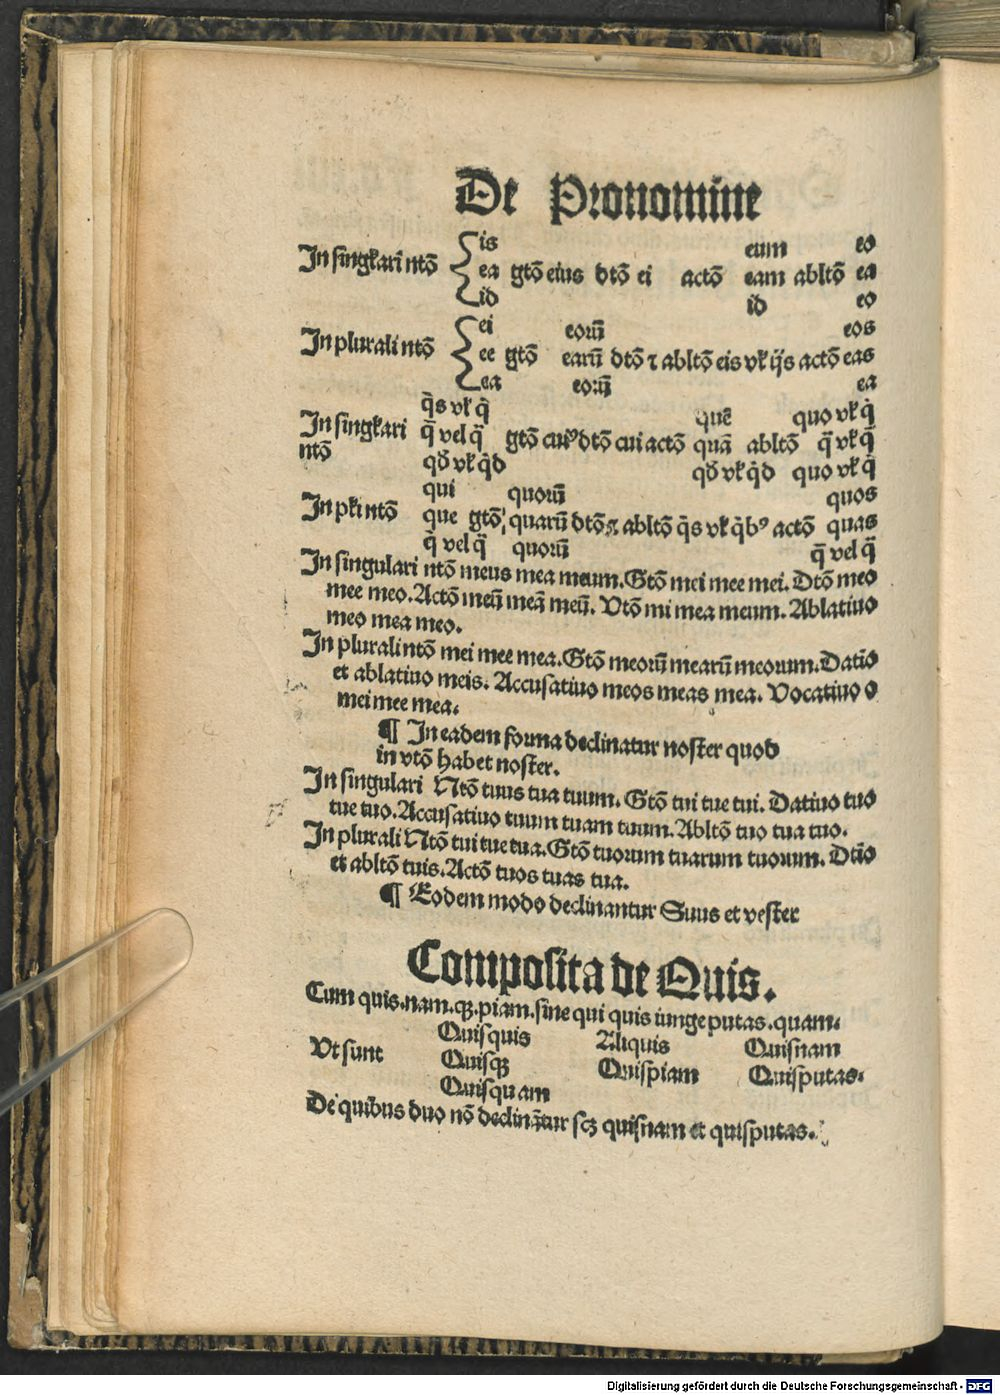 De Pronomine
is eum eo
In singłari ntō ea gtō eius dtō ei actō eam abltō ea
id id eo
ei eoꝝ̄ eos
In plurali ntō ee gtō earū dtō ⁊ abltō eis vł ijs actō eas
ea eoꝝ̄ ea
q̄s vł q̄ quē quo vł q̄
In singłari q̄ vel q̄ gtō cuiꝰ dtō cui actō quā abltō q̄ vł q̄
ntō qd̛ vł q̄d qd̛ vł q̄d quo vł q̄
qui quoꝝ̄ quos
In płi ntō que gtō quarū dtō ⁊ abltō q̄s vł q̄bꝰ actō quas
q̄ vel q̄ quoꝝ̄ q̄ vel q̄
In singulari ntō meus mea meum. Gtō mei mee mei. Dtō meo
mee meo. Actō meū meā meū. Vtō mi mea meum. Ablatiuo
meo mea meo.
In plurali ntō mei mee mea. Gtō meoꝝ̄ mearū meorum. Datīo
et ablatiuo meis. Accusatiuo meos meas mea. Vocatiuo o
mei mee mea.
¶ In eadem forma declinatur noster quod
in vtō habet noster.
In singulari Ntō tuus tua tuum. Gtō tui tue tui. Datiuo tuo
tue tuo. Accusatiuo tuum tuam tuum. Abltō tuo tua tuo.
In plurali Ntō tui tue tua. Gtō tuorum tuarum tuorum. Dtīo
et abltō tuis. Actō tuos tuas tua.
¶ Eodem modo declinantur Suus et vester
Composita de Quis.
Cum quis. nam. qꝫ. piam. sine qui quis iunge putas. quam.
Quisquis Aliquis Quisnam
Vt sunt Quisqꝫ Quispiam Quisputas.
Quisquam
De quibus duo nō declinātur scꝫ quisnam et quisputas.
Digitalisierung gefördert durch die Deutsche Forschungsgemeinschaft - DFG